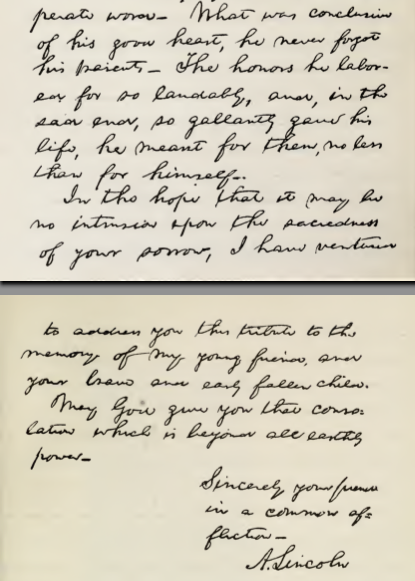 perate word— What was conclusive
of his good heart, he never forgot
his parents— The honors he labor-
ed for so laudably, and, in the
sad end, so gallantly gave his
life, he meant for them, no less
than for himself—.
In the hope that it may be
no intrusion upon the sacredness
of your sorrow, I have ventured
to address you this tribute to the
memory of my young friend, and
your brave and early fallen child.
May God give you that conso=
lation which is beyond all earthly
power—
Sincerely your friend
in a common af=
fliction—
A. Lincoln